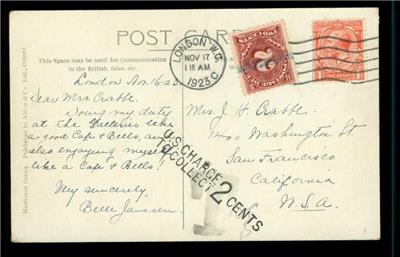 POST CARD
This Space may be used for Communication
in the British Isles, etc.
LONDON W.C.
NOV 17
1 15 AM
1923
London Nov. 16-23.
Dear Mrs. Crabbe.
Doing my duty
at the Galleries like
a good Cafe & Bells, and
also enjoying myself
like a Cafe & Bells!
Very sincerely,
Belle Janssen
Mrs. J. H. Crabbe
1200 Washington St
San Francisco
California
U.S.A.
U.S. CHARGE
TO COLLECT 2 CENTS